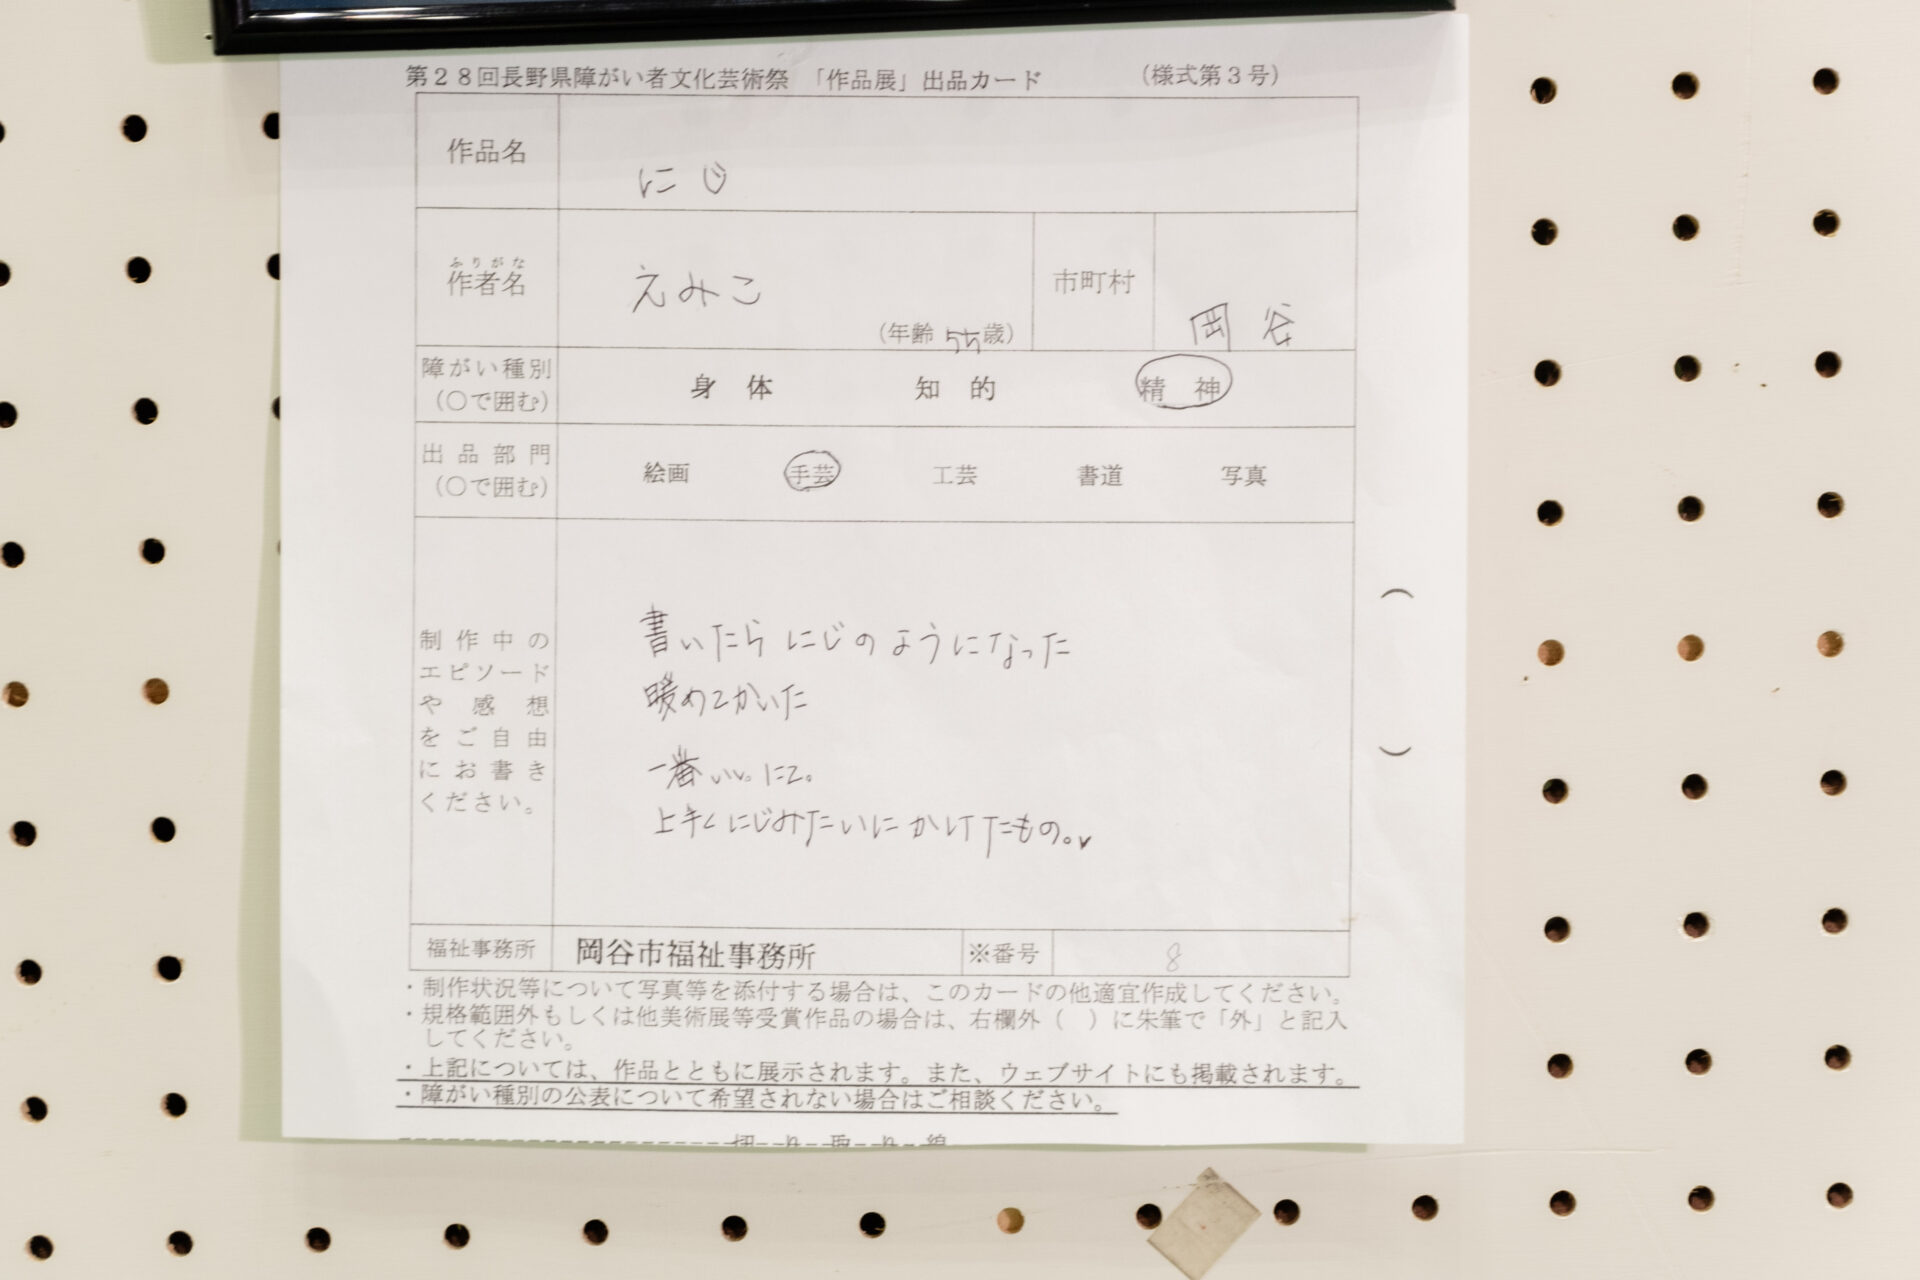 第28回長野県障がい者文化芸術祭 「作品展」出品カード (様式第3号)
作品名 にじ
ふりがな
作者名 えみこ (年齢 55歳) 市町村 岡谷
障がい種別 (○で囲む) 身体 知的 精神
出品部門 (○で囲む) 絵画 手芸 工芸 書道 写真
制作中の
エピソード
や感想
をご自由
にお書き
ください。
書いたらにじのようになった
暖めてかいた
一番いい。にこ。
上手くにじみたいにかけたもの。
( )
福祉事務所 岡谷市福祉事務所 ※番号 8
・制作状況等について写真等を添付する場合は、このカードの他適宜作成してください。
・規格範囲外もしくは他美術展等受賞作品の場合は、右欄外( )に朱筆で「外」と記入
してください。
・上記については、作品とともに展示されます。また、ウェブサイトにも掲載されます。
・障がい種別の公表について希望されない場合はご相談ください。
切り取り線